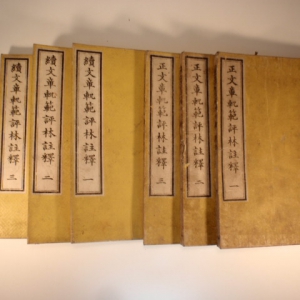 正文章軌範評林註釋 一
正文章軌範評林註釋 二
正文章軌範評林註釋 三
續文章軌範評林註釋 一
續文章軌範評林註釋 二
續文章軌範評林註釋 三